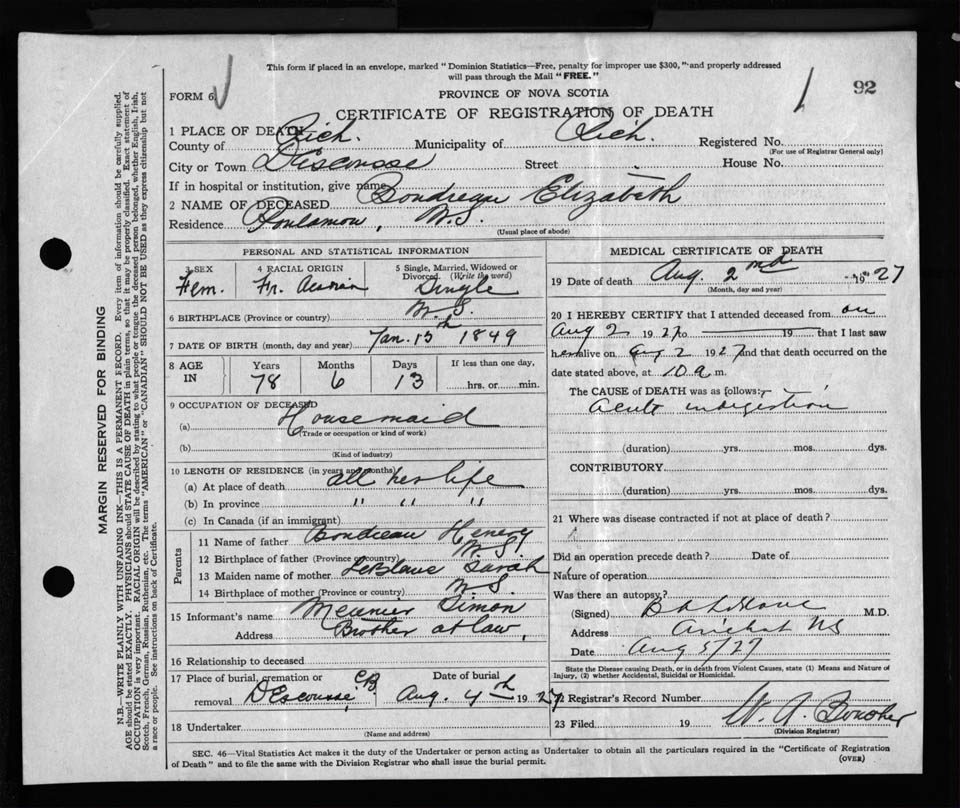 This form if placed in an envelope, marked "Dominion Statistics—Free, penalty for improper use $300," and properly addressed
will pass through the Mail "FREE."
FORM 6
PROVINCE OF NOVA SCOTIA
92
CERTIFICATE OF REGISTRATION OF DEATH
1 PLACE OF DEATH
County of Rich. Municipality of Rich. Registered No.
(For use of Registrar General only)
City or Town Descousse Street House No.
If in hospital or institution, give name
2 NAME OF DECEASED Elizabeth
Residence N.S.
(Usual place of abode)
PERSONAL AND STATISTICAL INFORMATION
3 SEX 4 RACIAL ORIGIN 5 Single, Married, Widowed or Divorced. (Write the word)
Fem. Fr. Acadian Single
6 BIRTHPLACE (Province or country) N.S.
7 DATE OF BIRTH (month, day and year) Jan. 15th 1849
8 AGE IN Years Months Days If less than one day,
78 6 13 hrs. or min.
9 OCCUPATION OF DECEASED
(a) Housemaid
(Trade or occupation or kind of work)
(b)
(Kind of industry)
10 LENGTH OF RESIDENCE (in years and months)
(a) At place of death all her life
(b) In province " " "
(c) In Canada (if an immigrant)
Parents
11 Name of father Henery
12 Birthplace of father (Province or country) N.S.
13 Maiden name of mother LeBlanc Sarah
14 Birthplace of mother (Province or country) N.S.
15 Informant's name Meunier Simon
Address Brother at law,
16 Relationship to deceased
17 Place of burial, cremation or removal Date of burial
DEscousse, CB Aug. 4th 1927
18 Undertaker
(Name and address)
MEDICAL CERTIFICATE OF DEATH
19 Date of death Aug. 2nd 1927
(Month, day and year)
20 I HEREBY CERTIFY that I attended deceased from on
Aug 2 1927 to 19 that I last saw
her alive on Aug 2 1927 and that death occurred on the
date stated above, at 10 a m.
The CAUSE of DEATH was as follows:
acute indigestion
(duration) yrs. mos. dys.
CONTRIBUTORY
(duration) yrs. mos. dys.
21 Where was disease contracted if not at place of death?
Did an operation precede death? Date of
Nature of operation
Was there an autopsy?
(Signed) M.D.
Address Arichat NS
Date Aug 5/27
State the Disease causing Death, or in death from Violent Causes, state (1) Means and Nature of
Injury, (2) whether Accidental, Suicidal or Homicidal.
22 Registrar's Record Number
23 Filed 19 W. A.
(Division Registrar)
SEC. 46—Vital Statistics Act makes it the duty of the Undertaker or person acting as Undertaker to obtain all the particulars required in the "Certificate of Registration
of Death" and to file the same with the Division Registrar who shall issue the burial permit.
(OVER)
MARGIN RESERVED FOR BINDING
N.B.—WRITE PLAINLY WITH UNFADING INK—THIS IS A PERMANENT RECORD. Every item of information should be carefully supplied.
AGE should be stated EXACTLY. PHYSICIANS should STATE CAUSE OF DEATH in plain terms, so that it may be properly classified. Exact statement of
OCCUPATION is very important. RACIAL ORIGIN will be described by stating to what people or tongue the deceased person belonged, whether English, Irish,
Scotch, French, German, Russian, Ruthenian, etc. The terms "AMERICAN" or "CANADIAN" SHOULD NOT BE USED as they express citizenship but not
a race or people. See instructions on back of Certificate.